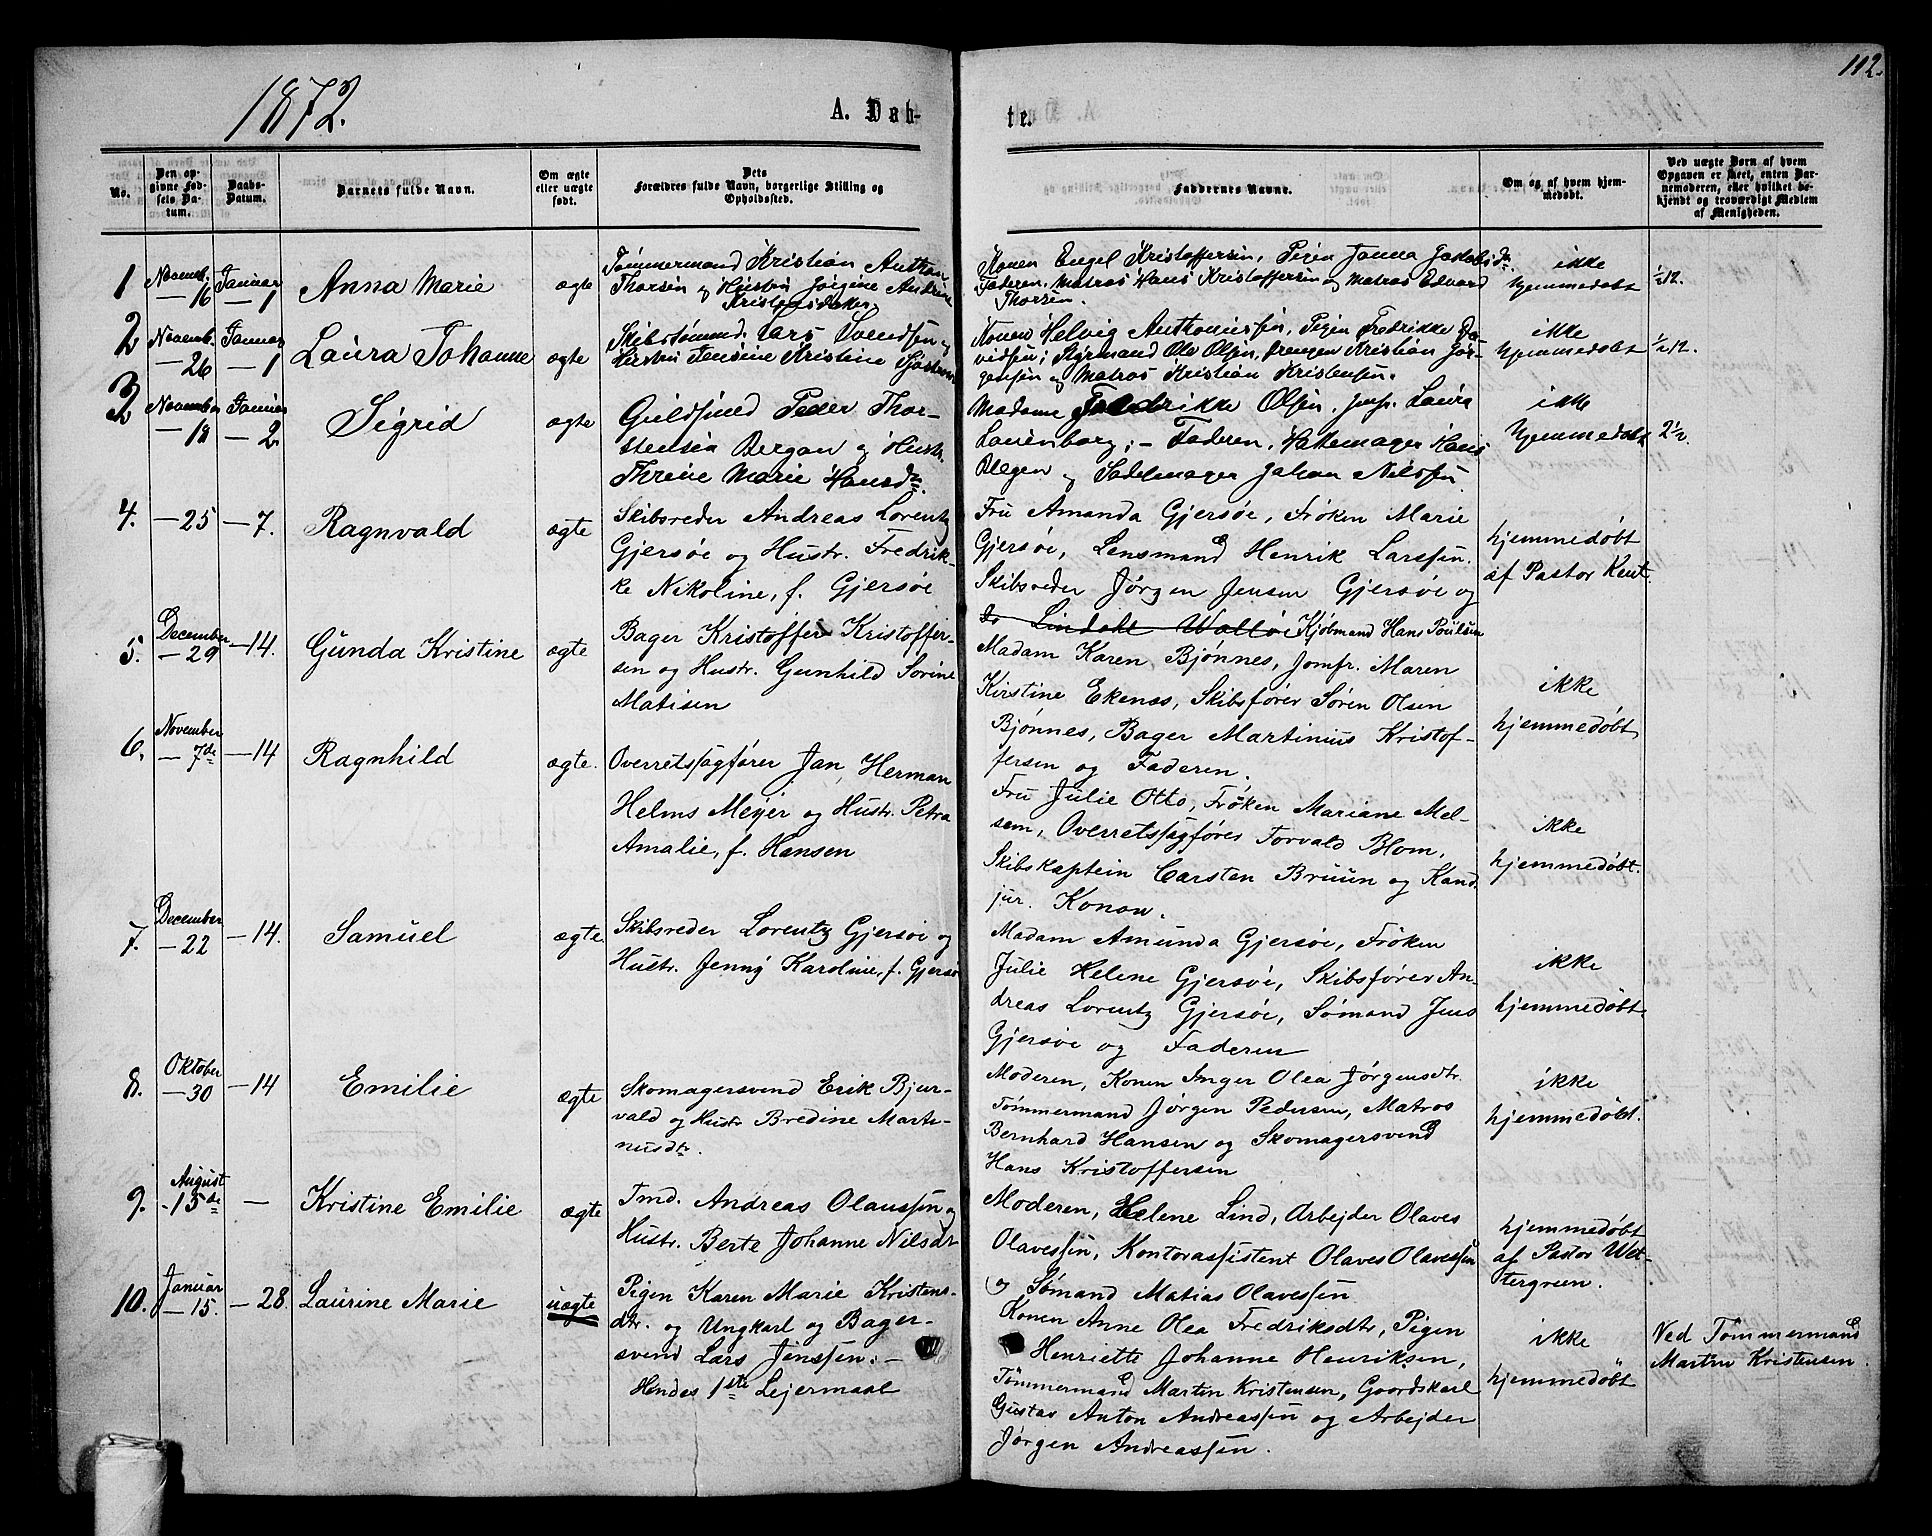 1872.
112.
A. Dab-
te.
No.
Den op-
givne Fød-
sels Da-
tum.
Daabs-
Datum.
Barnets fulde Navn.
Om ægte
eller uægte
født.
Dets
Forældres fulde Navn, borgerlige Stilling og
Opholdssted.
Faddernes Navne.
Om og af hvem hjem-
medøbt.
Ved uægte Børn af hvem
Opgaven er skeet, enten Bar-
nemoderen, eller hvilket be-
kjendt og troværdigt Medlem
af Menigheden.
1
Novemb.
— 16
Januar
— 1
Anna Marie
ægte
Tømmermand Kristian Anthon
Thorsen og Hustru Jörgine Andrine
Konen Engel Kristoffersen, Pigen Janna Jakobsdn
Faderen, Matros Hans Kristoffersen og Matros Edvard
Thorsen.
ikke
hjemmedøbt
1/2 12.
2
Novemb.
— 26
Januar
— 1
Laura Johanne
ægte
Skibstømmd. Lars Svendsen og
Konen Helvig Anthonissen, Pigen Fredrikke Da-
vidsen; Styrmand Ole Olsen, Drengen Kristian Jør-
gensen og Matros Kristian Kristensen.
ikke
hjemmedøbt
1/2 12.
3
Novemb
— 18
Januar
— 2.
Sigrid
ægte
Guldsmed Peder Thor-
stensen Bergan og Hustr.
Thrine Marie Hansdn.
Madame Fredrikke Olsen, Jmfr. Laura
Lauenborg; — Faderen, Hattemager Hans
Blegen og Sadelmager Johan Nilssen
ikke
hjemmedøbt
2 1/2.
4.
— 25
— 7.
Ragnvald
ægte
Skibsreder Andreas Lorentz
Gjersøe og Hustr. Fredrik-
ke Nikoline, f. Gjersøe
Fru Amanda Gjersøe, Frøken Marie
Gjersøe, Lensmand Henrik Larssen.
Skibsreder Jørgen Jensen Gjersøe og
do Lindahl Walløe Kjøbmand Hans Poulsen
hjemmedøbt
af Pastor Kent.
5.
December
— 29
— 14.
Gunda Kristine
ægte
Bager Kristoffer Kristoffer-
sen og Hustr. Gunhild Sørine
Matisen
Madam Karen Bjønnes, Jomfr. Maren
Kirstine Ekenæs, Skibsfører Søren Olsen
Bjønnes, Bager Martinius Kristof-
fersen og Faderen.
ikke
hjemmedøbt
6.
November
— 7de
— 14
Ragnhild
ægte.
Overretssagfører Jan Herman
Helms Meyer og Hustr. Petra
Amalie, f. Hansen
Fru Julie Otto, Frøken Mariane Mel-
sem, Overretssagfører Torvald Blom,
Skibskaptein Carsten Bruun og Kand.
jur. Konow.
ikke
hjemmedøbt.
7.
December
— 22
— 14.
Samuel
ægte
Skibsreder Lorentz Gjersøe og
Hustr. Jenny Karoline, f. Gjersøe
Madam Amunda Gjersøe, Frøken
Julie Helene Gjersøe, Skibsfører An-
dreas Lorentz Gjersøe, Sømand Jens
Gjersøe og Faderen
ikke
hjemmedøbt.
8.
Oktober
— 30
— 14
Emilie
ægte
Skomagersvend Erik Bjur-
vald og Hustr Bredine Marti-
nusdtr.
Moderen, Konen Inger Olea Jørgensdtr.
Tømmermand Jørgen Pedersen, Matros
Bernhard Hansen og Skomagersvend
Hans Kristoffersen
ikke
hjemmedøbt.
9.
August
15de
—
Kristine Emilie
ægte
Tmd. Andreas Olaussen og
Hustr. Berte Johanne Nilsdtr
Moderen, Helene Lind, Arbejder Olaves
Olavessen, Kontorassistent Olaves Olavessen
og Sømand Matias Olavessen
hjemmedøbt
af Pastor Wet-
tergreen.
10.
Januar
— 15.
— 28.
Laurine Marie
uægte
Pigen Karen Marie Kristens-
dtr. og Ungkarl og Bager-
svend Lars Jenssen. —
Hendes 1ste Lejermaal
Konen Anne Olea Fredriksdtr, Pigen
Henriette Johanne Henriksen,
Tømmermand Martin Kristensen, Gaardskarl
Gustav Anton Andreassen og Arbejder
Jørgen Andreassen.
ikke
hjemmedøbt
Ved Tömmermand
Martin Kristensen.